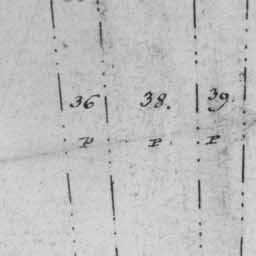 36 38. 39.
P P P